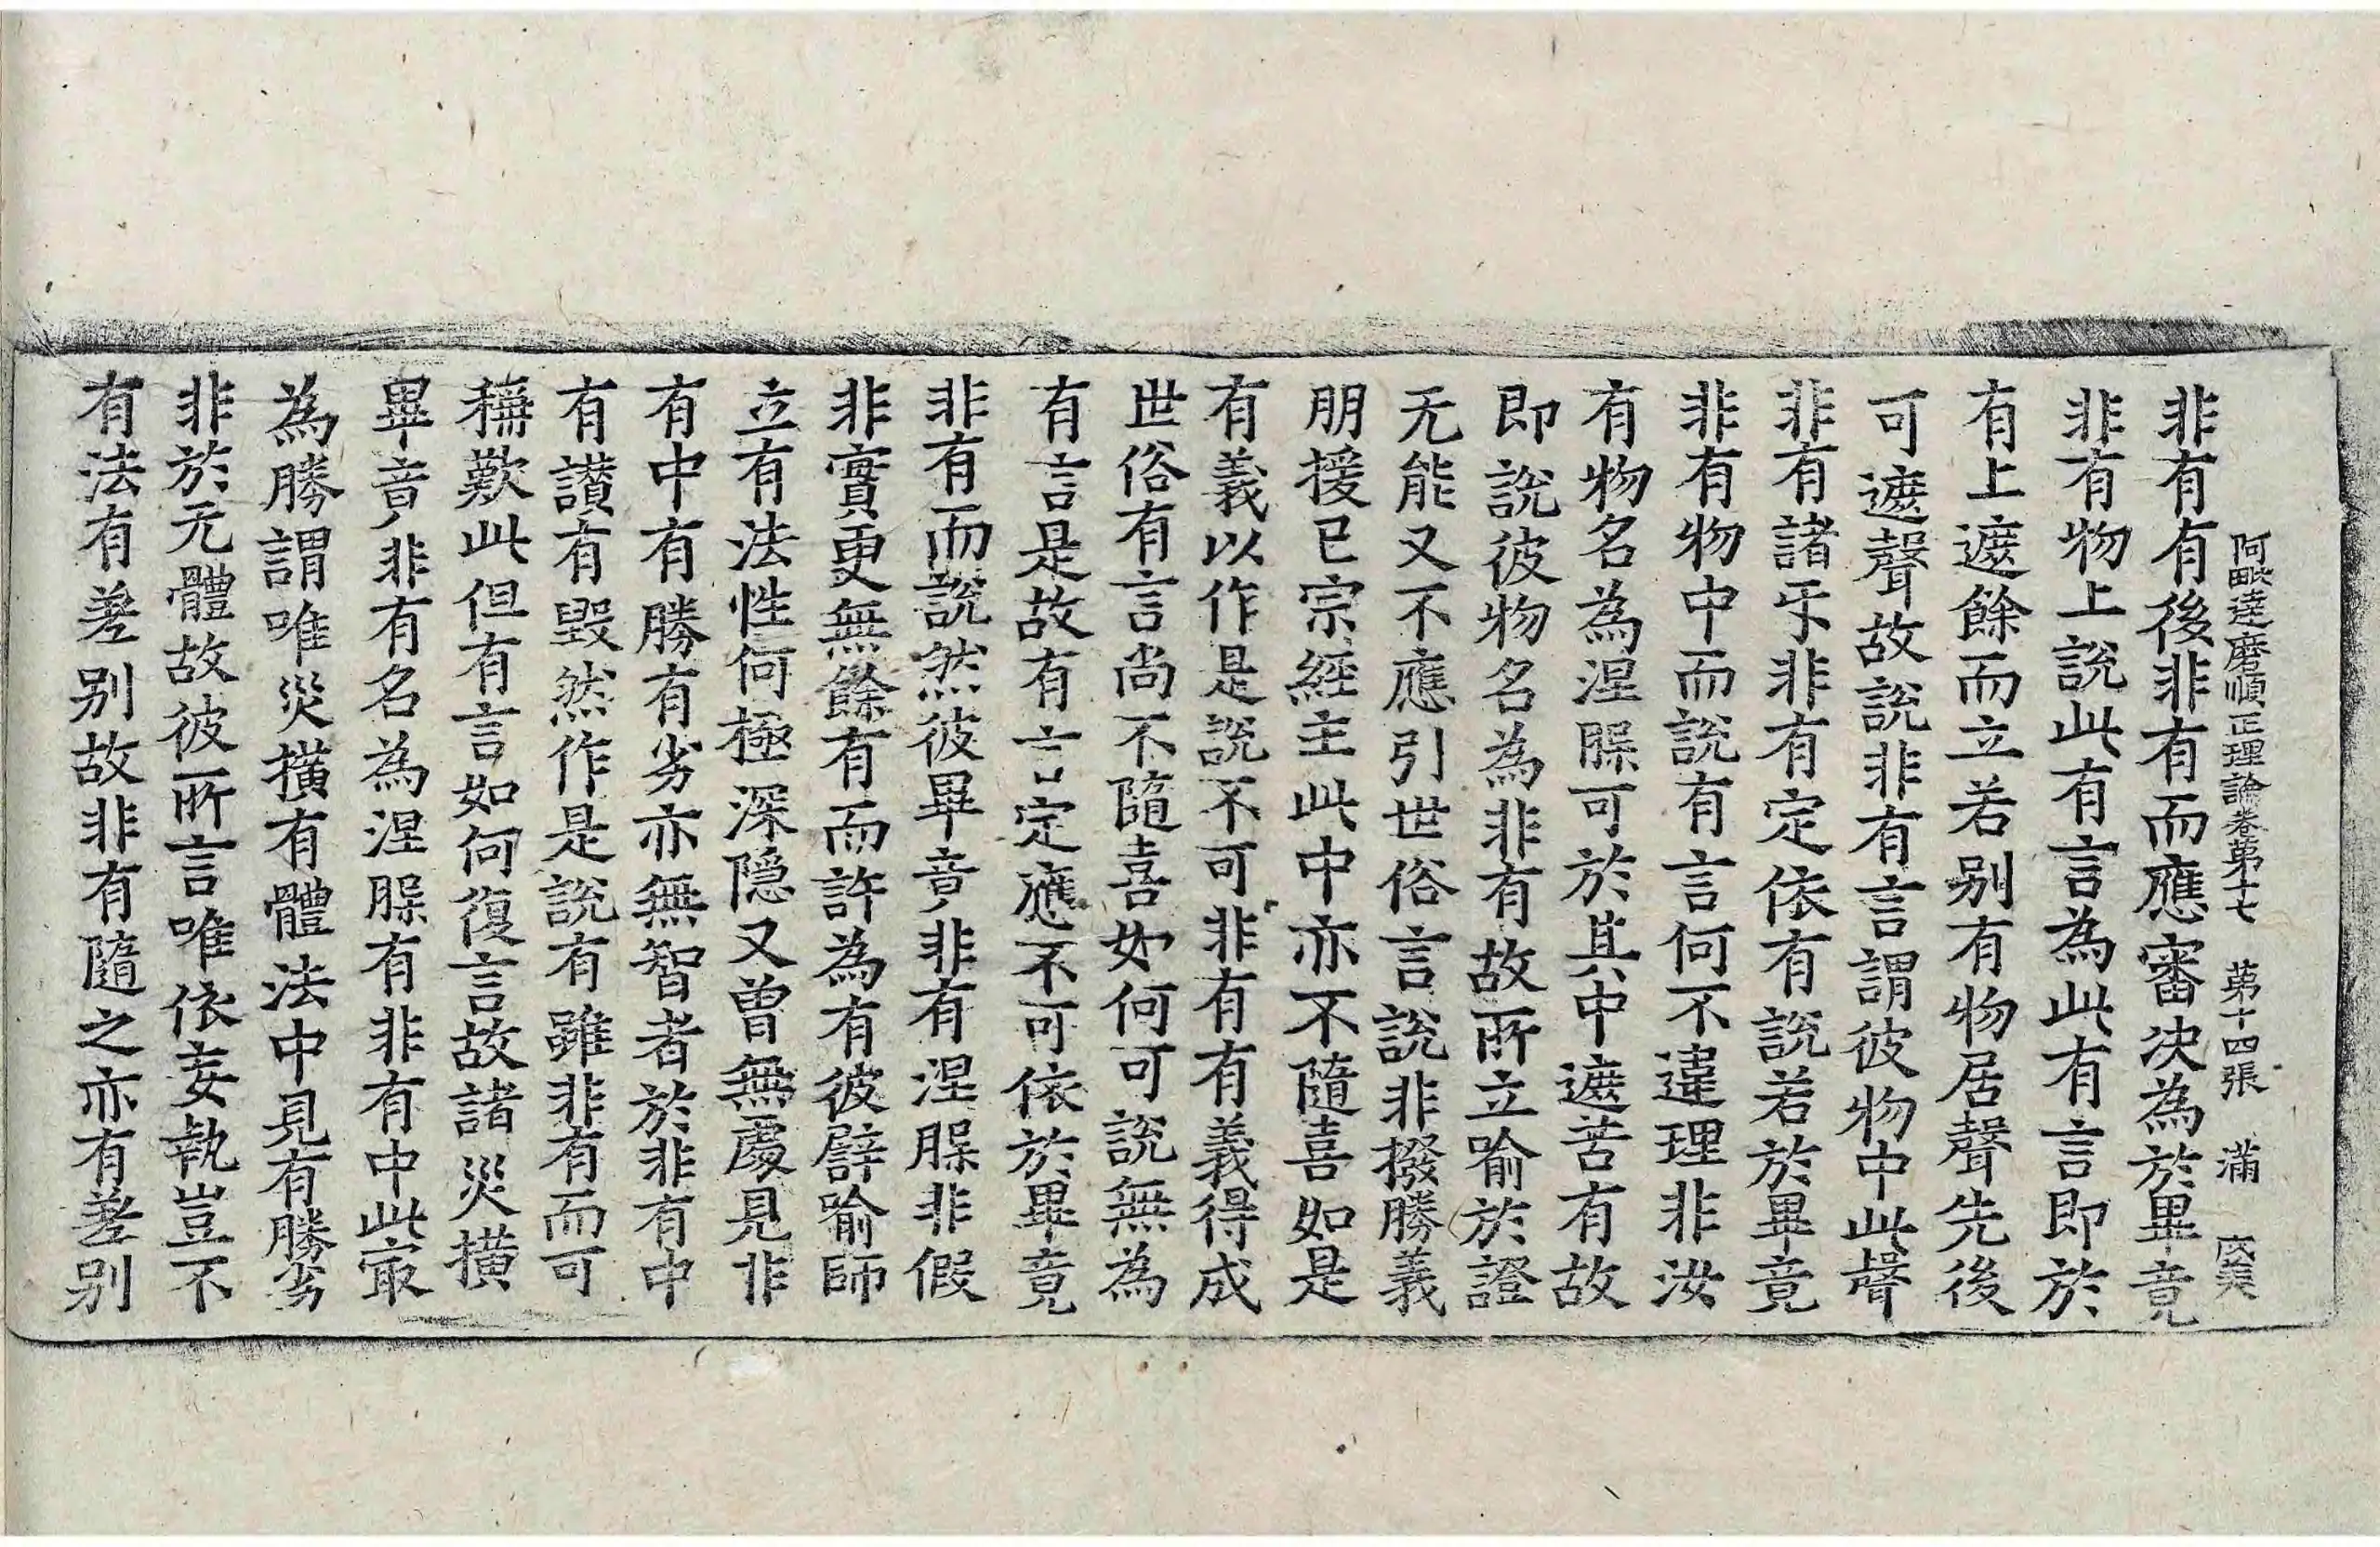 阿毗達磨順正理論卷第十七　第十四張　滿
非有有後非有而應審決為於畢竟
非有物上說此有言為此有言即於
有上遮餘而立若別有物居聲先後
可遮聲故說非有言謂彼物中此聲
非有諸牙非有定依有說若於畢竟
非有物中而說有言何不違理非汝
有物名為涅槃可於其中遮苦有故
即說彼物名為非有故所立喻於證
无能又不應引世俗言說非撥勝義
朋援已宗經主此中亦不隨喜如是
有義以作是說不可非有有義得成
世俗有言尚不隨喜如何可說無為
有言是故有言定應不可依於畢竟
非有而說然彼畢竟非有涅槃非假
非實更無餘有而許為有彼譬喻師
立有法性何極深隱又曾無處見非
有中有勝有劣亦無智者於非有中
有讃有毀然作是說有雖非有而可
稱歎此但有言如何復言故諸災撗
畢竟非有名為涅槃有非有中此㝡
為勝謂唯災撗有體法中見有勝劣
非於无體故彼所言唯依妄執豈不
有法有差別故非有隨之亦有差別